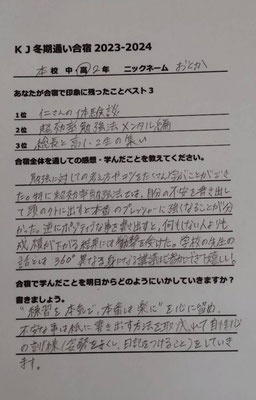 KJ冬期通い合宿 2023-2024
本校 中・高2年 ニックネーム おとか
あなたが合宿で印象に残ったことベスト3
1位 仁さんの体験談
2位 超効率勉強法 メンタル編
3位 総長と高1.2生の集い
合宿全体を通しての感想・学んだことを教えてください。
勉強に対しての考え方やコツをたくさん学ぶことができ
た。特に超効率勉強法では、自分の不安を書き出し
て頭の外に出すと本番のプレッシャーに強くなることが分
かった。逆にポジティブな事を書き出すと、何もしない人より
成績が下がる結果には衝撃を受けた。学校の先生の
話とは360°異なる身になる講義に参加できて嬉しい!
合宿で学んだことを明日からどのようにいかしていきますか?
書きましょう。
"練習を本気で、本番は楽に"を心に留め、
不安な事は紙に書き出す方法を取り入れて自制心
の訓練(姿勢をよくし、日記をつけること)をしていき
ます。